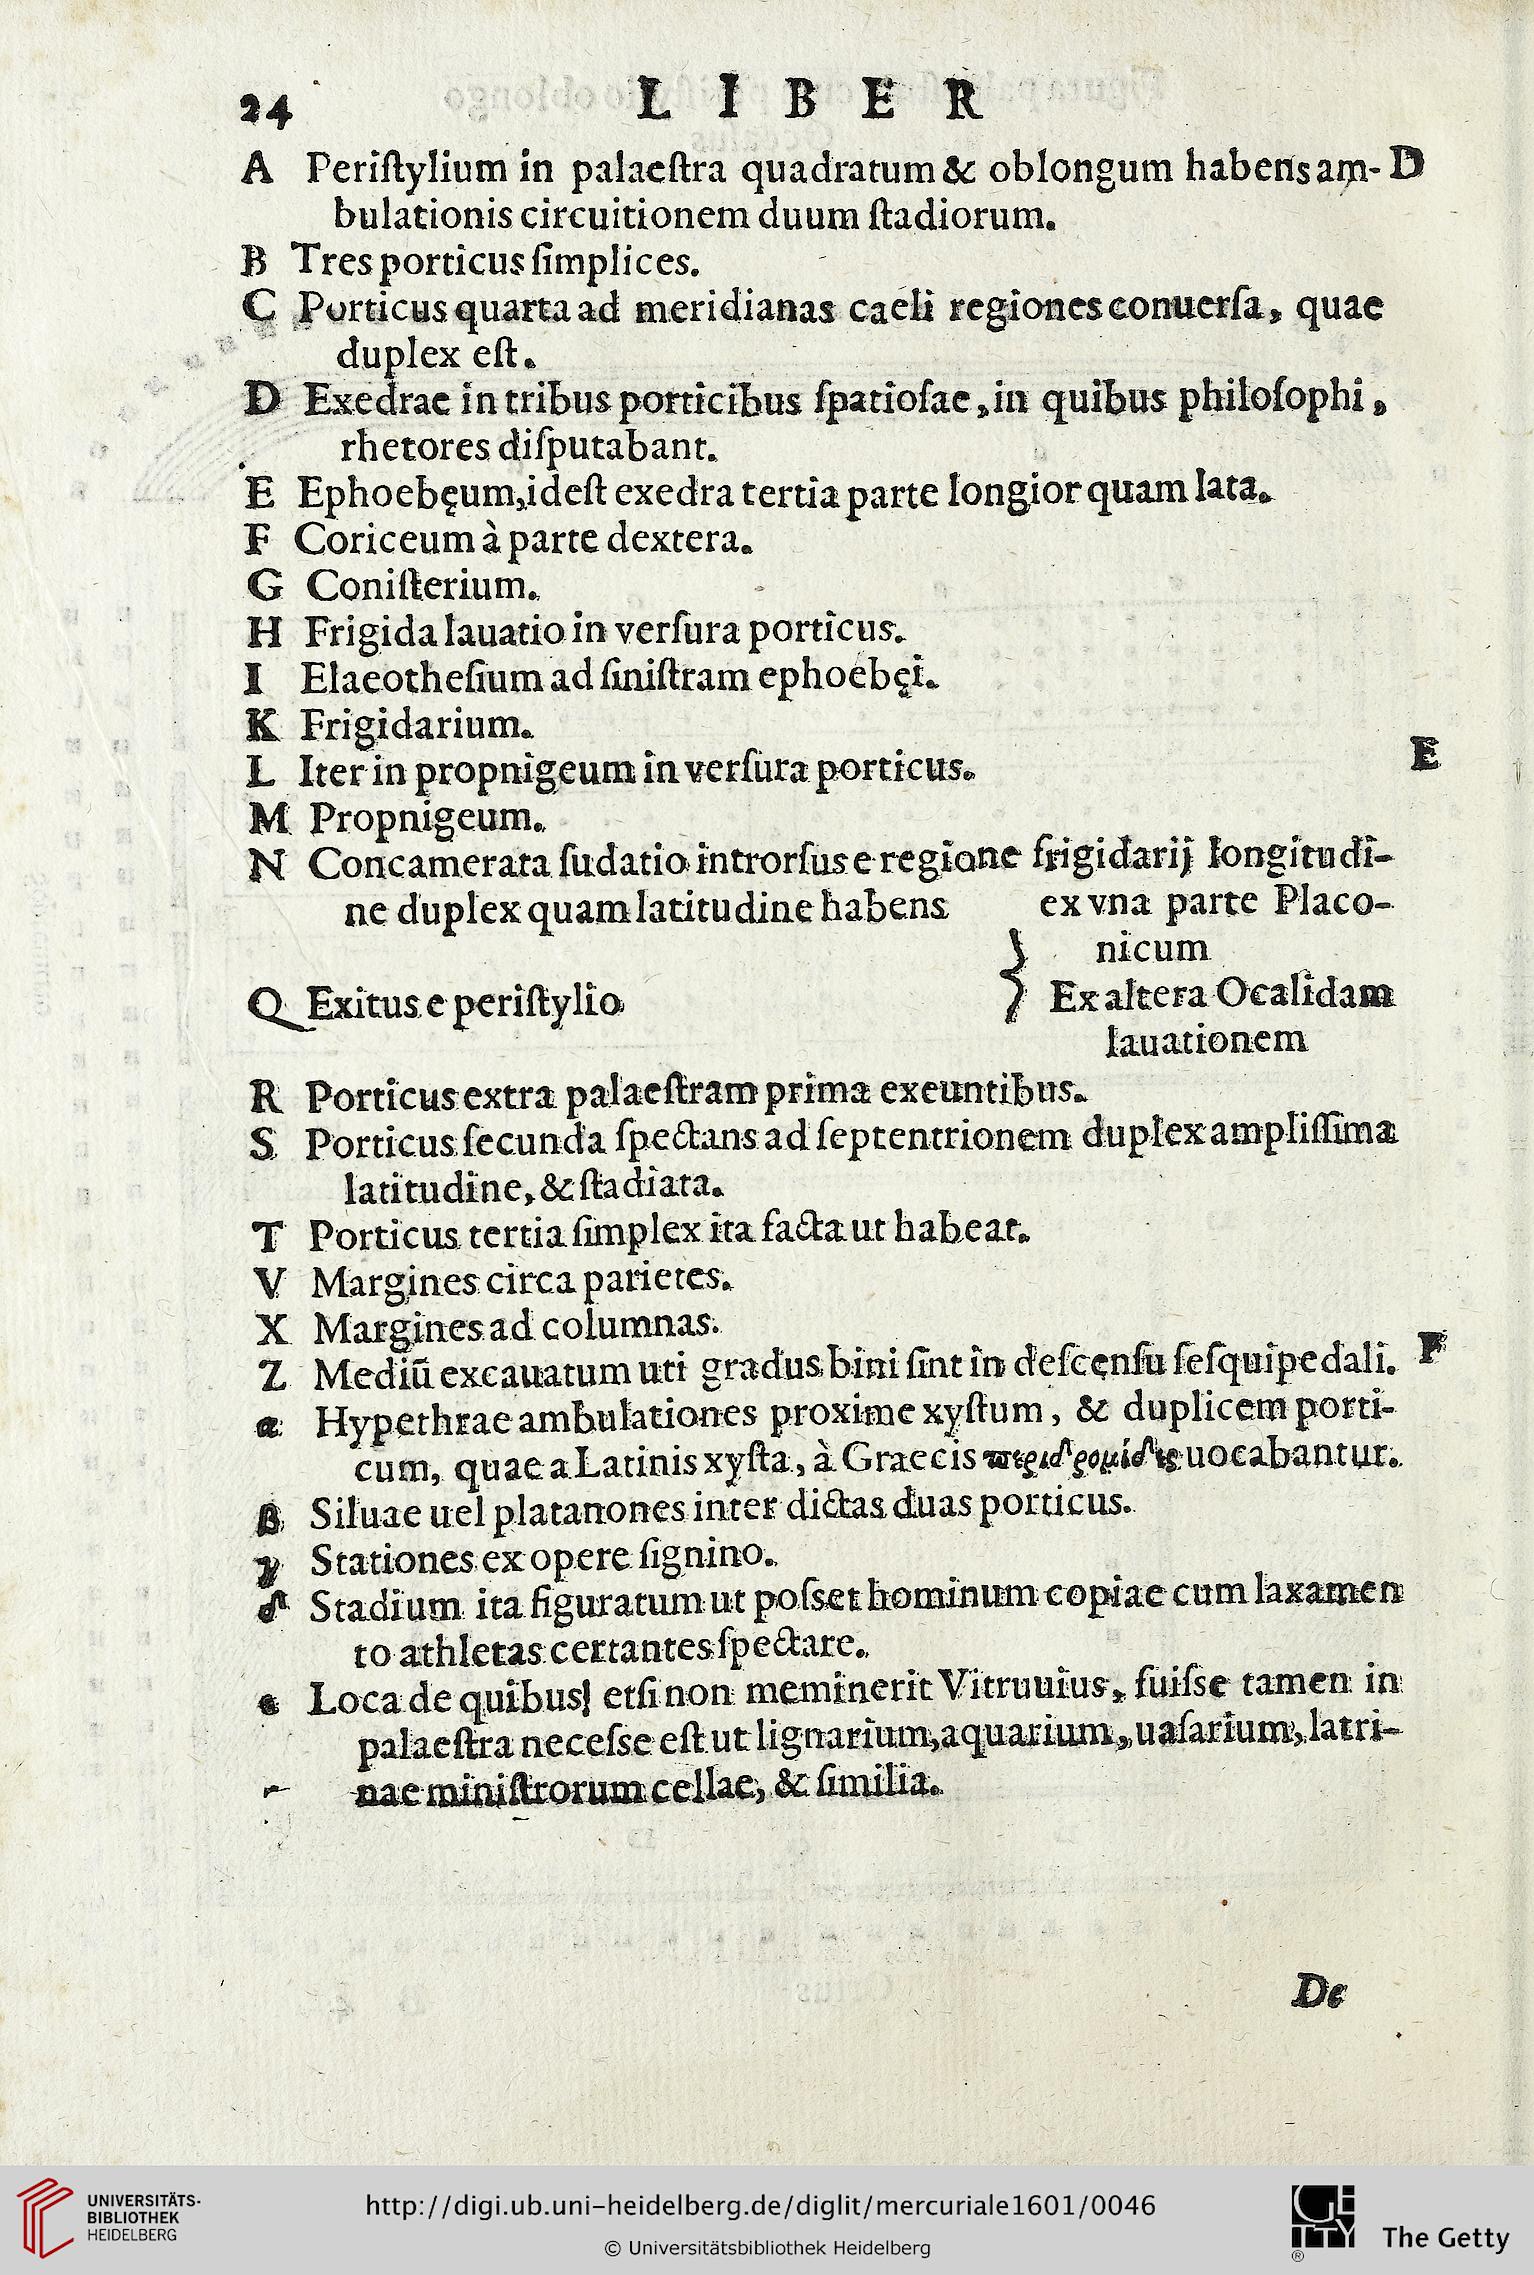 24 LIBER
A Periſtylium in palaeſtra quadratum & oblongum habens am- D
bulationis circuitionem duum ſtadiorum.
B Tres porticus ſimplices.
C Porticus quarta ad meridianas caeli regiones conuerſa, quae
duplex eſt.
D Exedrae in tribus porticibus ſpatioſae, in quibus philoſophi,
rhetores diſputabant.
E Ephoebęum, ideſt exedra tertia parte longior quam lata.
F Coriceum à parte dextera.
G Coniſterium.
H Frigida lauatio in verſura porticus.
I Elaeotheſium ad ſiniſtram ephoebęi.
K Frigidarium.
E
L Iter in propnigeum in verſura porticus.
M Propnigeum.
N Concamerata ſudatio introrſus e regione frigidarij longitudi-
ne duplex quam latitudine habens ex vna parte Placo-
nicum
Q Exitus e periſtylio } Ex altera Ocalidam
lauationem
R Porticus extra palaeſtram prima exeuntibus.
S Porticus ſecunda ſpectans ad ſeptentrionem duplex ampliſſima
latitudine, & ſtadiata.
T Porticus tertia ſimplex ita facta ut habeat.
V Margines circa parietes.
X Margines ad columnas.
Z Mediū excauatum uti gradus bini ſint in deſcenſu ſeſquipedali. F
α Hypethrae ambulationes proxime xyſtum, & duplicem porti-
cum, quae a Latinis xyſta, à Graecis περιδρομίδες uocabantur.
β Siluae uel platanones inter dictas duas porticus.
γ Stationes ex opere ſignino.
δ Stadium ita figuratum ut poſset hominum copiae cum laxamen
to athletas certantes ſpectare.
ε Loca de quibus, etſi non meminerit Vitruuius, fuiſse tamen in
palaeſtra neceſse eſt ut lignarium, aquarium, uaſarium, latri-
nae miniſtrorum cellae, & ſimilia.
De
UNIVERSITÄTS-
BIBLIOTHEK
HEIDELBERG
http://digi.ub.uni-heidelberg.de/diglit/mercuriale1601/0046
© Universitätsbibliothek Heidelberg
GETTY
®
The Getty